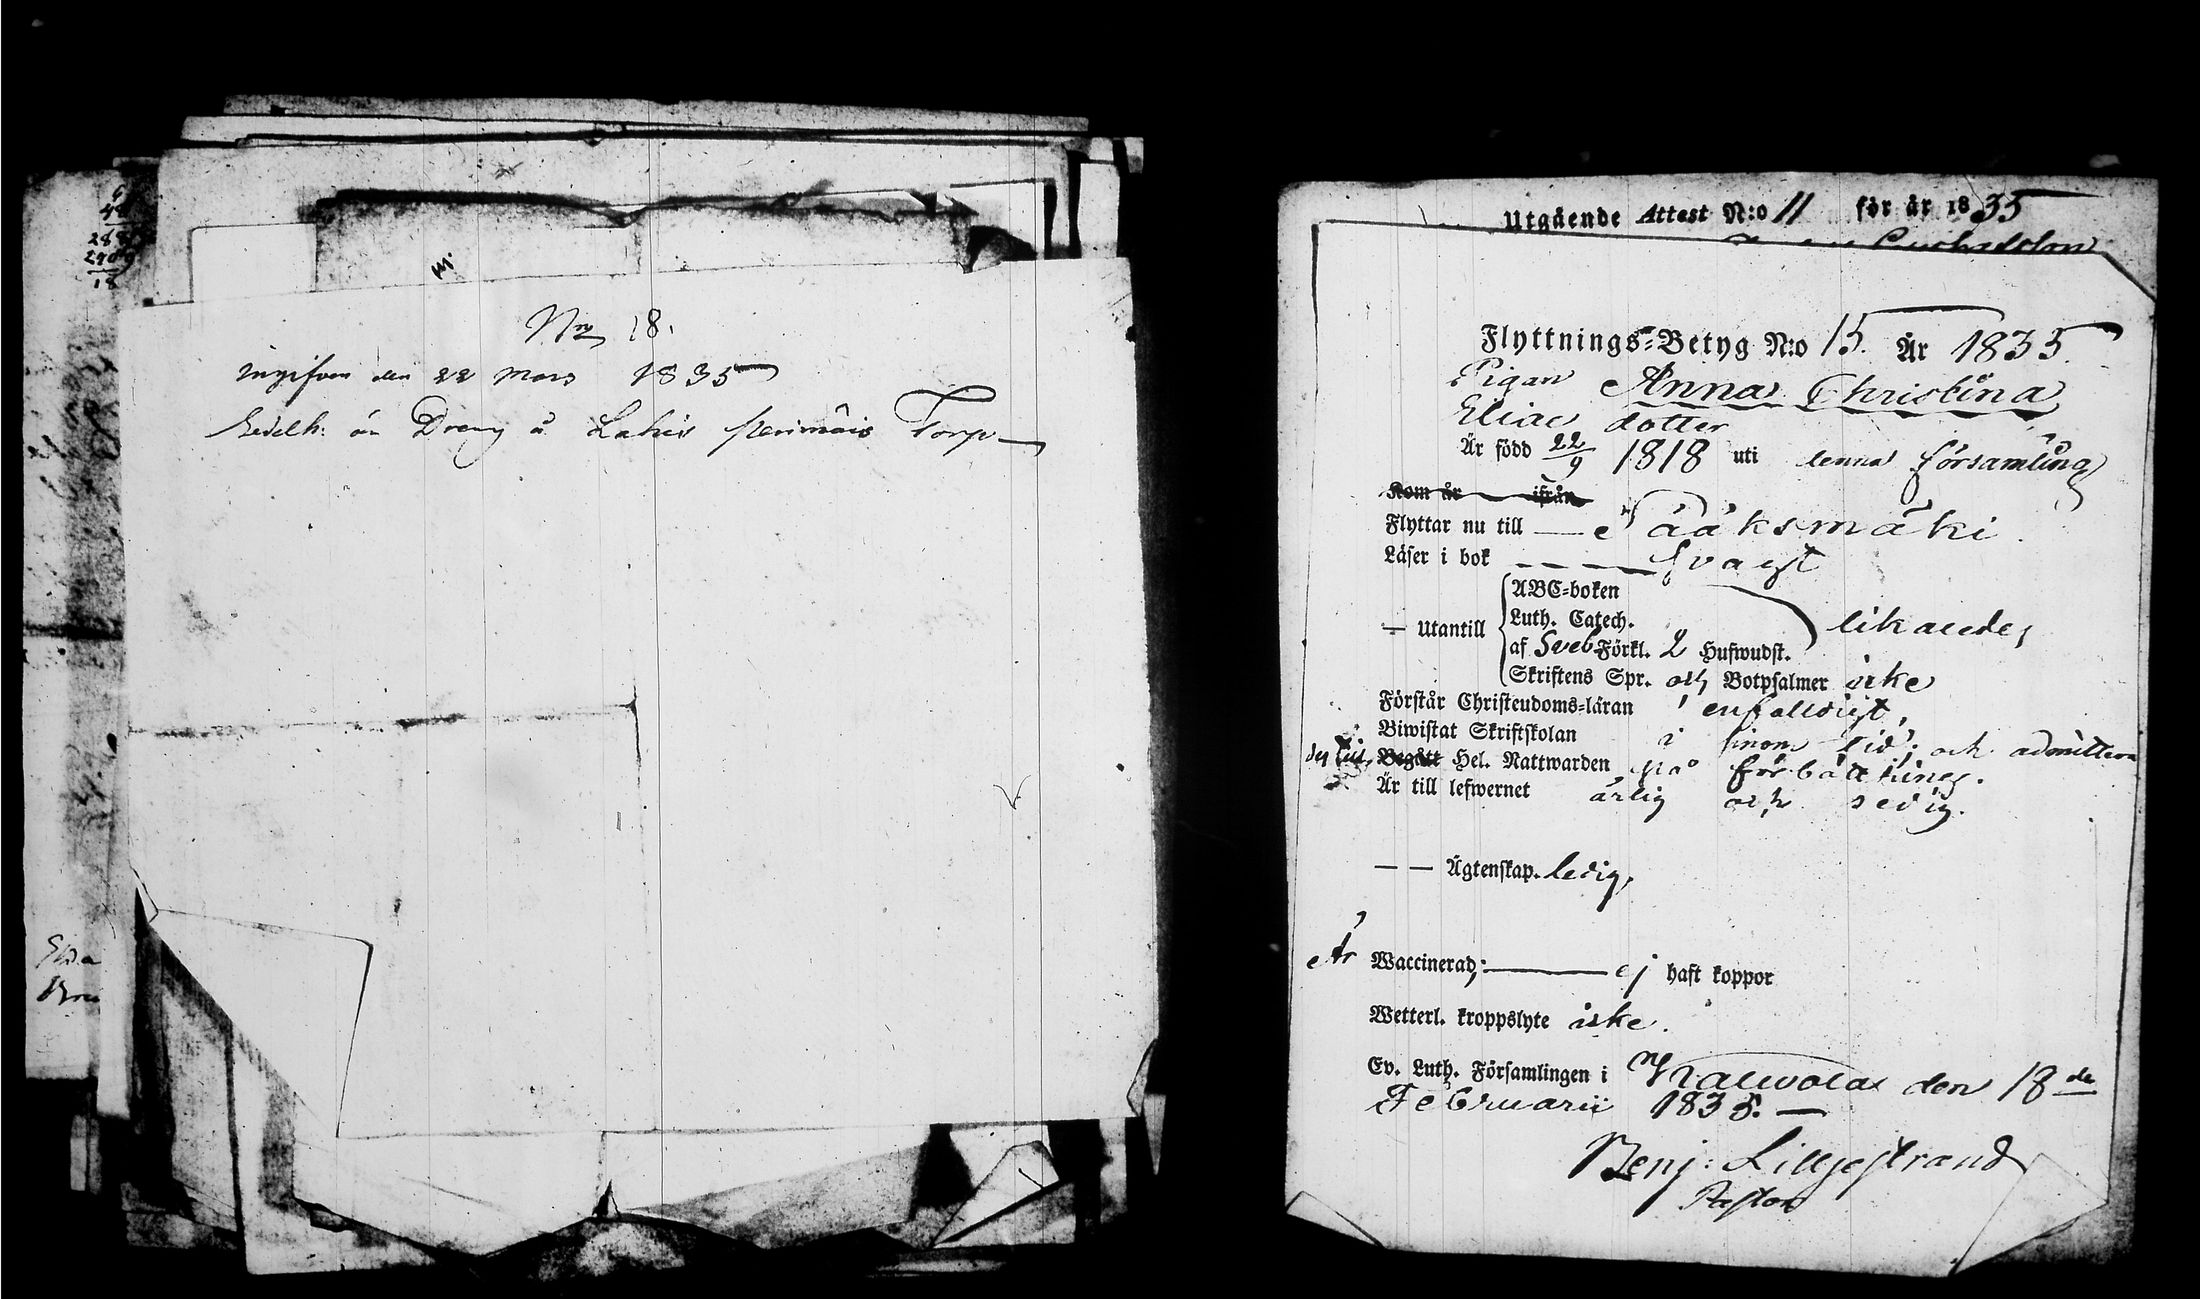 48
288
18
N:o 18.
ingifven den 22 Mars 1835
än Dreng å Torp
Elsa
Utgående Attest N:o 11 för år 1835
Flyttnings-Betyg N:o 15. År 1835.
Pigan Anna Christina
Elias dotter
Är född 22/9 1818 uti denna församling
Kom år ifrån
Flyttar nu till — Sääksmäki
Läser i bok — — — svagt
— Utantill
ABC-boken
Luth. Catech.
likaledes
af Sveb. Förkl. 2 Hufwudst.
Skriftens Spr. och Botpsalmer icke
Förstår Christendoms-läran enfaldigt,
Biwistat Skriftskolan i sinom tid; och admitteras
Begått Hel. Nattwarden på förbättring.
Är till lefwernet ärlig och sedig.
— — Ägtenskap. ledig,
Är Waccinerad; — ej haft koppor
Wetterl. kroppslyte icke.
Ev. Luth. Församlingen i Kalvola den 18de
Februarii 1835. —
Benj: Lilljestrand
Pastor